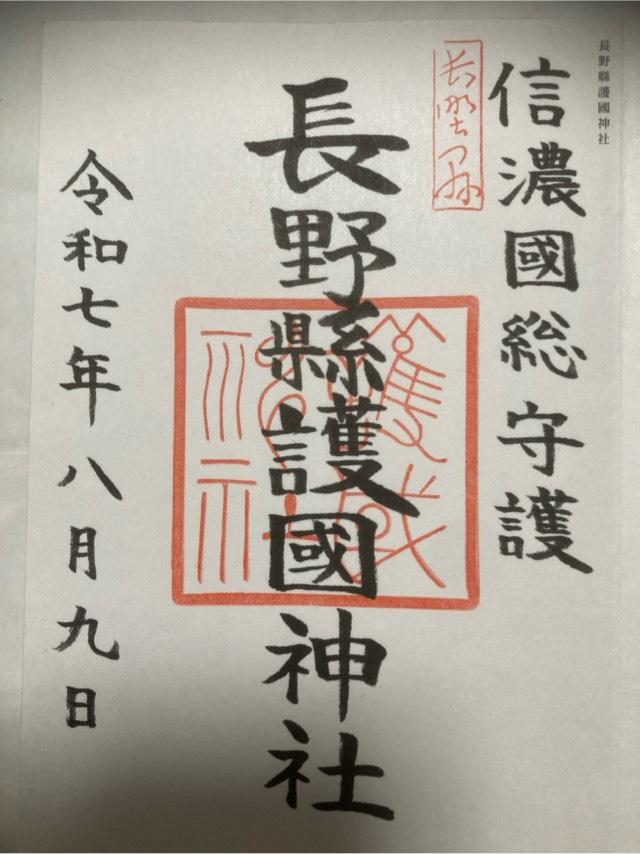 長野縣護國神社
信濃國総守護
長野縣護國神社
令和七年八月九日